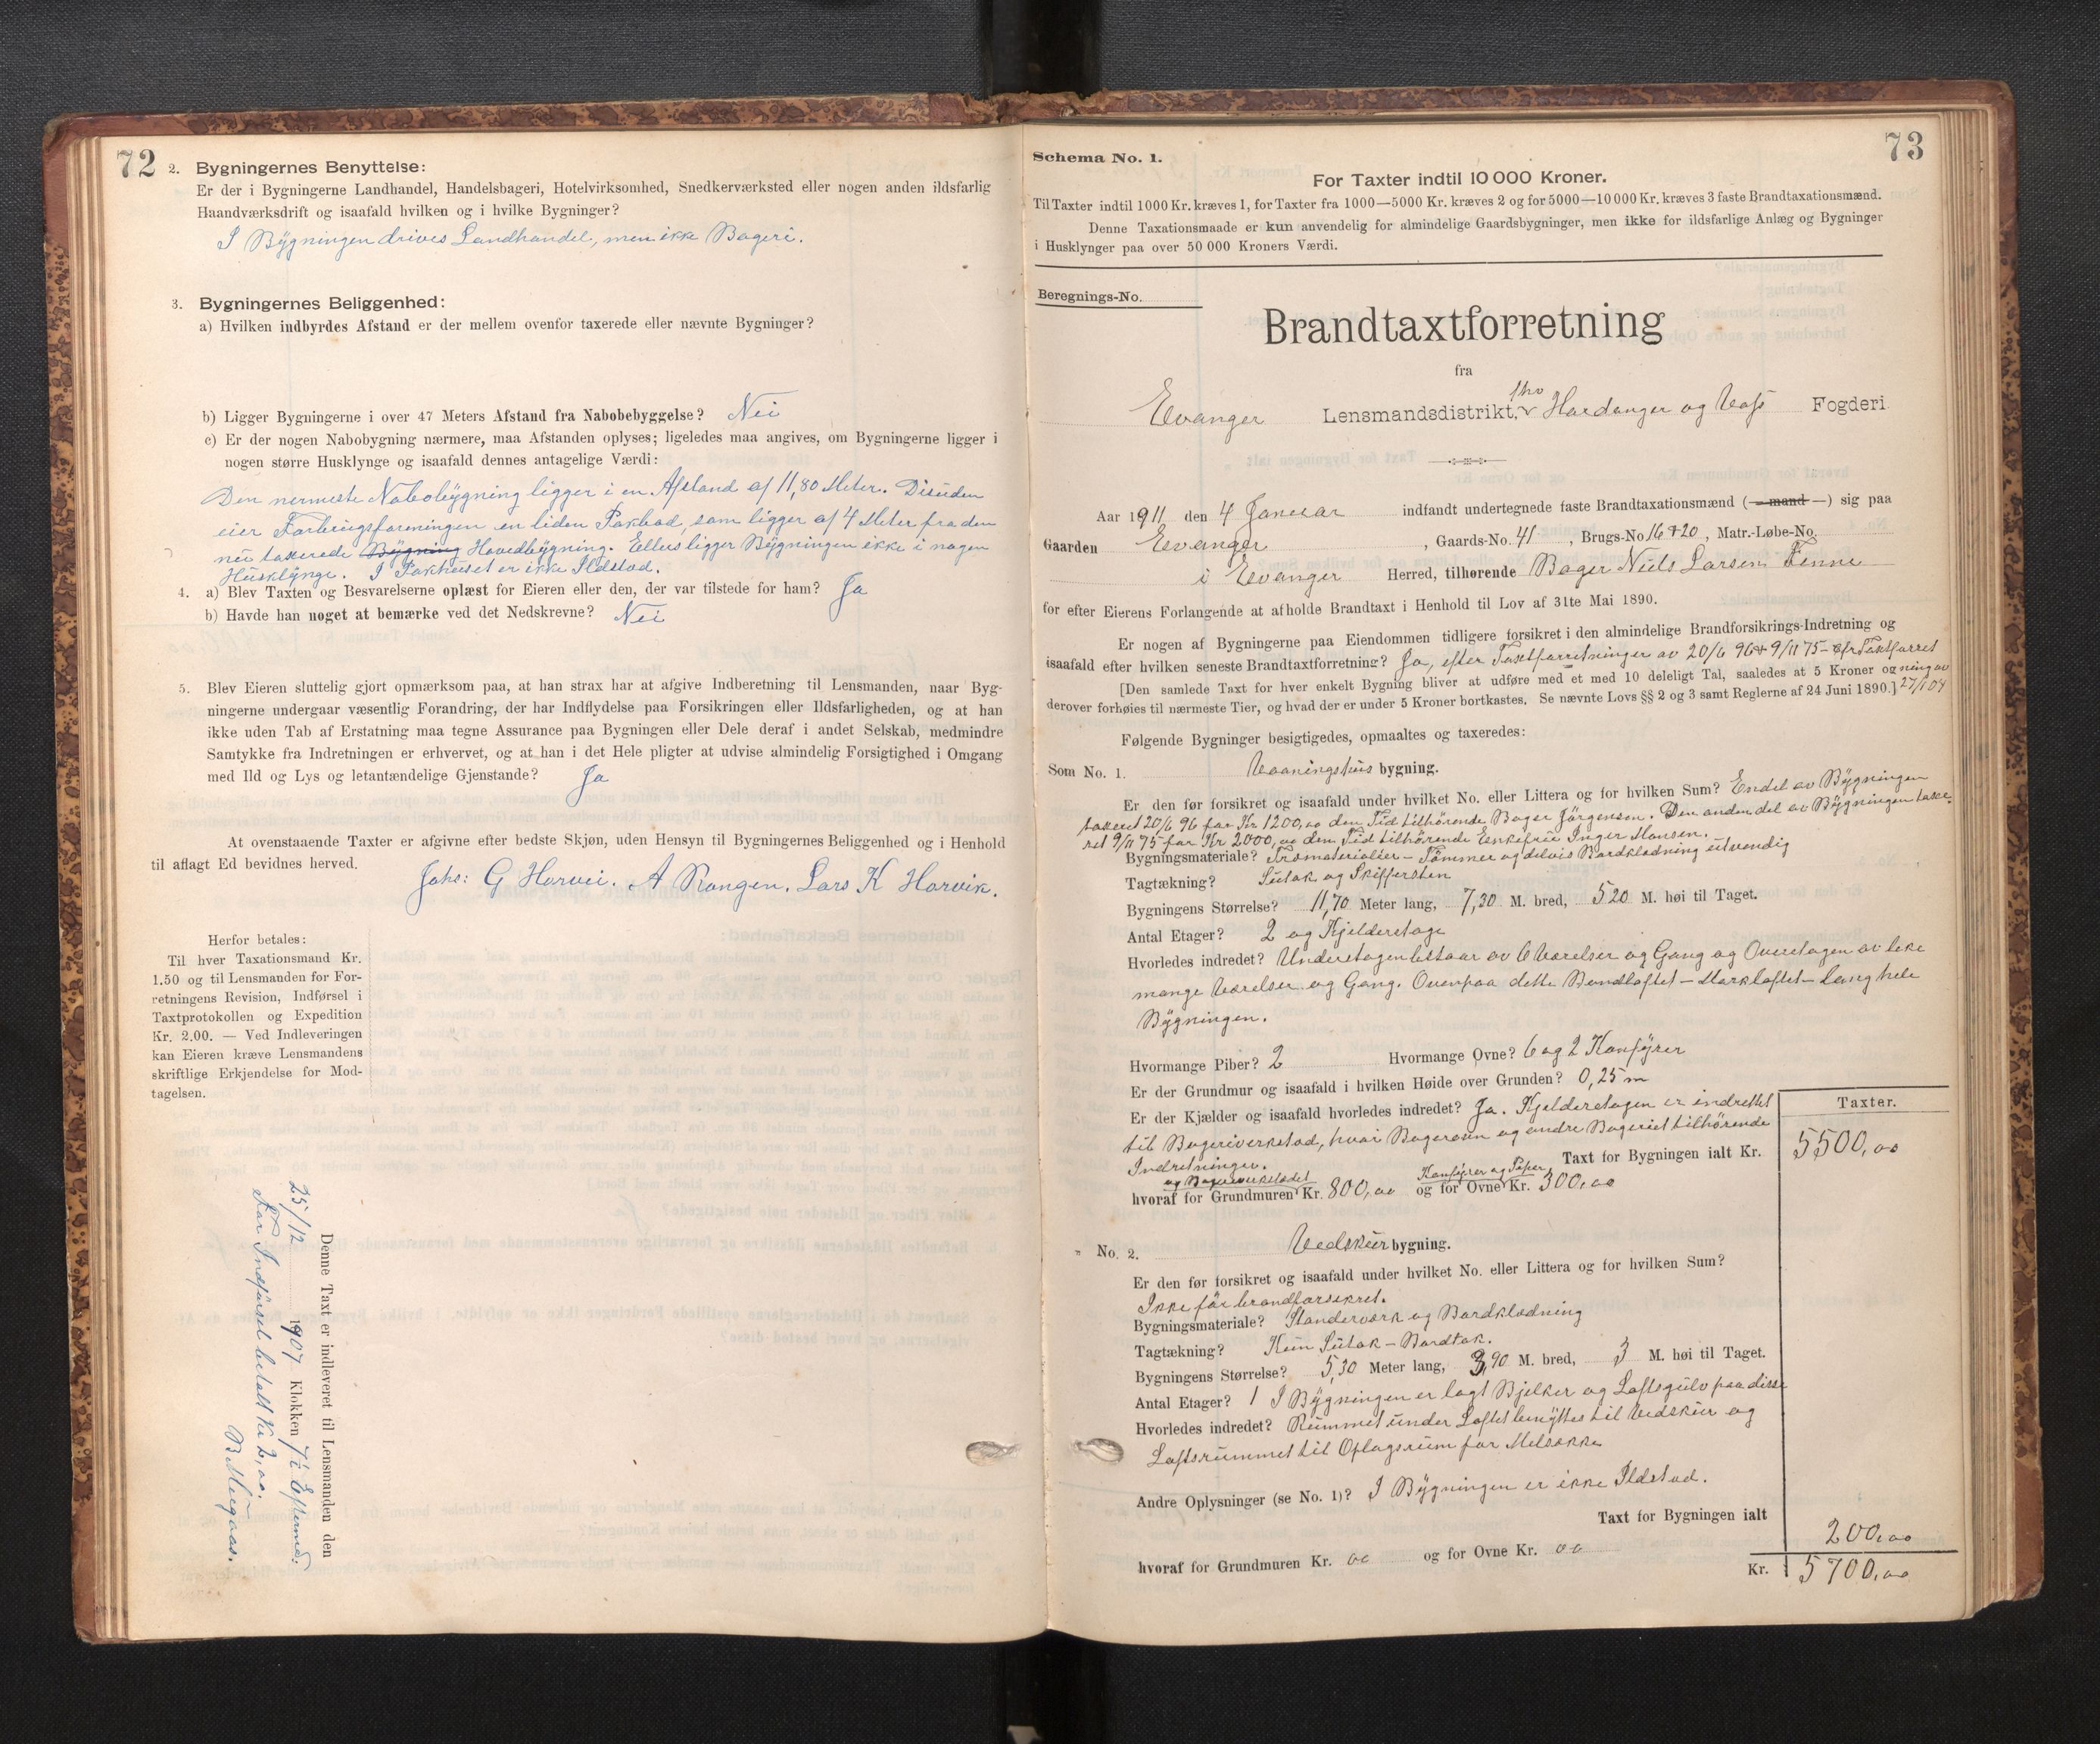 72
2. Bygningernes Benyttelse:
Er der i Bygningerne Landhandel, Handelsbageri, Hotelvirksomhed, Snedkerværksted eller nogen anden ildsfarlig
Haandværksdrift og isaafald hvilken og i hvilke Bygninger?
I Bygningen drives Landhandel, men ikke Bageri.
3. Bygningernes Beliggenhed:
a) Hvilken indbyrdes Afstand er der mellem ovenfor taxerede eller nævnte Bygninger?
b) Ligger Bygningerne i over 47 Meters Afstand fra Nabobebyggelse? Nei
c) Er der nogen Nabobygning nærmere, maa Afstanden oplyses; ligeledes maa angives, om Bygningerne ligger i
nogen større Husklynge og isaafald dennes antagelige Værdi:
Den nermeste Nabobygning ligger i en Afstand af 11,80 Meter. Desuden
eier Forbrugsforeningen en liden Pakbod, som ligger af 4 Meter fra den
nu taxerede Bygning Hovedbygning. Ellers ligger Bygningen ikke i nogen
Husklynge. I Pakhuset er ikke Ildsted.
4. a) Blev Taxten og Besvarelserne oplæst for Eieren eller den, der var tilstede for ham? Ja
b) Havde han noget at bemærke ved det Nedskrevne? Nei
5. Blev Eieren sluttelig gjort opmærksom paa, at han strax har at afgive Indberetning til Lensmanden, naar Byg-
ningerne undergaar væsentlig Forandring, der har Indflydelse paa Forsikringen eller Ildsfarligheden, og at han
ikke uden Tab af Erstatning maa tegne Assurance paa Bygningen eller Dele deraf i andet Selskab, medmindre
Samtykke fra Indretningen er erhvervet, og at han i det Hele pligter at udvise almindelig Forsigtighed i Omgang
med Ild og Lys og letantændelige Gjenstande? Ja
At ovenstaaende Taxter er afgivne efter bedste Skjøn, uden Hensyn til Bygningernes Beliggenhed og i Henhold
til aflagt Ed bevidnes herved.
Johs: G Horvei. A Rongen. Lars K Horvik.
Herfor betales:
Til hver Taxationsmand Kr.
1.50 og til Lensmanden for For-
retningens Revision, Indførsel i
Taxtprotokollen og Expedition
Kr. 2.00. — Ved Indleveringen
kan Eieren kræve Lensmandens
skriftlige Erkjendelse for Mod-
tagelsen.
Denne Taxt er indleveret til Lensmanden den
25/12 1907 Klokken 7½ Efterm.
For Indførsel betalt Kr 2,00.
73
Schema No. 1.
For Taxter indtil 10 000 Kroner.
Til Taxter indtil 1000 Kr. kræves 1, for Taxter fra 1000—5000 Kr. kræves 2 og for 5000—10 000 Kr. kræves 3 faste Brandtaxationsmænd.
Denne Taxationsmaade er kun anvendelig for almindelige Gaardsbygninger, men ikke for ildsfarlige Anlæg og Bygninger
i Husklynger paa over 50 000 Kroners Værdi.
Beregnings-No.
Brandtaxtforretning
fra
Evanger Lensmandsdistrikt, Hardanger og Voss Fogderi
Aar 1911 den 4 Januar indfandt undertegnede faste Brandtaxationsmænd (—mand—) sig paa
Gaarden Evanger, Gaards-No. 41, Brugs-No 16 & 20, Matr.-Løbe-No.
i Evanger Herred, tilhørende Bager Niels Larsen Fenne
for efter Eierens Forlangende at afholde Brandtaxt i Henhold til Lov af 31te Mai 1890.
Er nogen af Bygningerne paa Eiendommen tidligere forsikret i den almindelige Brandforsikrings-Indretning og
isaafald efter hvilken seneste Brandtaxtforretning? Ja, efter Taxtforretninger av 20/6 96 & 9/11 75 - efr Taxtforret
ning av 27/1 04
[Den samlede Taxt for hver enkelt Bygning bliver at udføre med et med 10 deleligt Tal, saaledes at 5 Kroner og
derover forhøies til nærmeste Tier, og hvad der er under 5 Kroner bortkastes. Se nævnte Lovs §§ 2 og 3 samt Reglerne af 24 Juni 1890.]
Følgende Bygninger besigtigedes, opmaaltes og taxeredes:
Som No. 1. Vaaningshus bygning.
Er den før forsikret og isaafald under hvilket No. eller Littera og for hvilken Sum? Endel av Bygningen
taxeret 20/6 96 for Kr 1200,00 den Tid tilhörende Bager Jörgensen. Den anden del av Bygningen taxe-
ret 9/11 75 for Kr 2000,00 den Tid tilhörende Enkefru Inger Monsen.
Bygningsmateriale? Træmaterialier - Tömmer og delvis Bordklædning udvendig
Tagtækning? Sutak og Skiffersten
Bygningens Størrelse? 11,70 Meter lang, 7,30 M. bred, 5 20 M. høi til Taget.
Antal Etager? 2 og Kjelderetage
Hvorledes indredet? Underetagen bestaar av 6 Værelser og Gang og Overetagen av like
mange Værelser og Gang. Ovenpaa dette Bundloftet - Mørkloftet - langs hele
Bygningen.
Hvormange Piber? 2 Hvormange Ovne? 6 og 2 Komfyrer
Er der Grundmur og isaafald i hvilken Høide over Grunden? 0,25 m
Er der Kjælder og isaafald hvorledes indredet? Ja. Kjelderetagen er indrettet
til Bageriverksted, hvor Bagerovn og andre Bageriet tilhörende
Indretninger.
Taxter.
Taxt for Bygningen ialt Kr. 5500,00
hvoraf for Grundmuren og Bageverkstedet Kr. 800,00 og for Ovne Komfyrer og Piper Kr. 300,00
" No. 2. Vedskur bygning.
Er den før forsikret og isaafald under hvilket No. eller Littera og for hvilken Sum?
Ikke før brandforsikret.
Bygningsmateriale? Standerværk og Bordklædning
Tagtækning? Kun Sutak - Bordtak.
Bygningens Størrelse? 5,30 Meter lang, 3,90 M. bred, 3 M. høi til Taget.
Antal Etager? 1 I Bygningen er lagt Bjelker og Loftsgulv paa disse
Hvorledes indredet? Rummet under Loftet benyttes til Vedskur og
Loftsrummet til Oplagsrum for Melsække
Andre Oplysninger (se No. 1)? I Bygningen er ikke Ildsted.
Taxt for Bygningen ialt 200,00
hvoraf for Grundmuren Kr. 00 og for Ovne Kr. 00
Kr. 5700,00